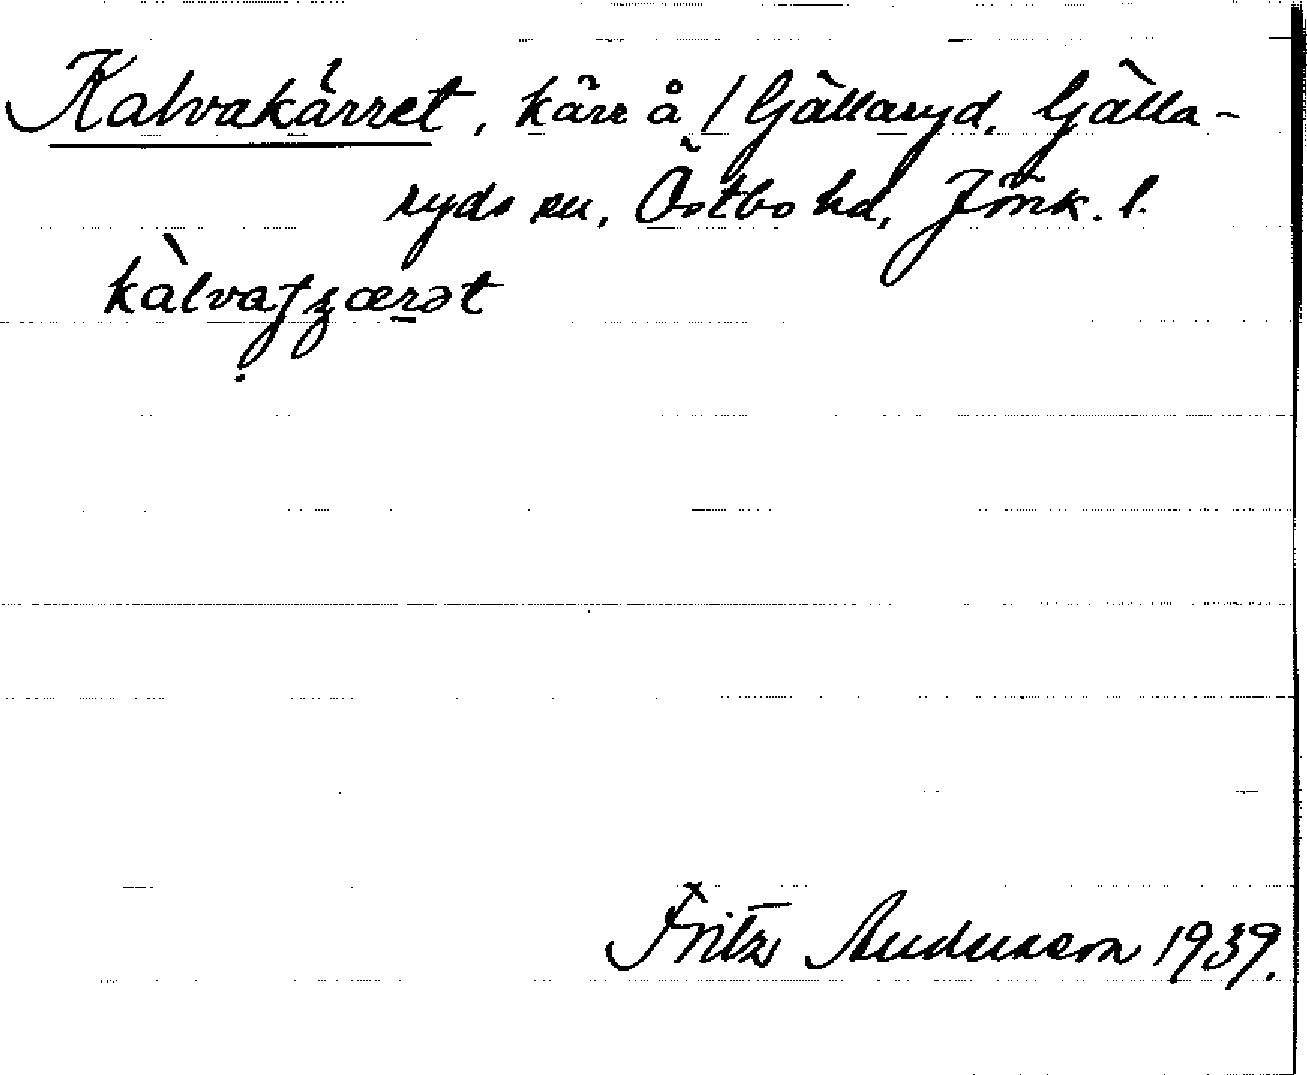 Kalvakärret, kärr å / Gällaryd, Gälla-
ryds sn, Östbo hd, Jönk. l.
kàlvaʄʒærət
Fritz Anderson 1939.